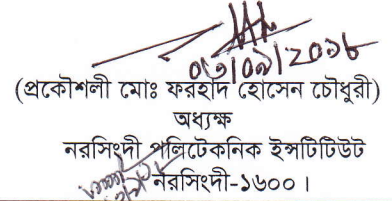 ০৩/০৯/২০১৮
(প্রকৌশলী মোঃ ফরহাদ হোসেন চৌধুরী)
অধ্যক্ষ
নরসিংদী পলিটেকনিক ইন্সটিটিউট
নরসিংদী-১৬০০।